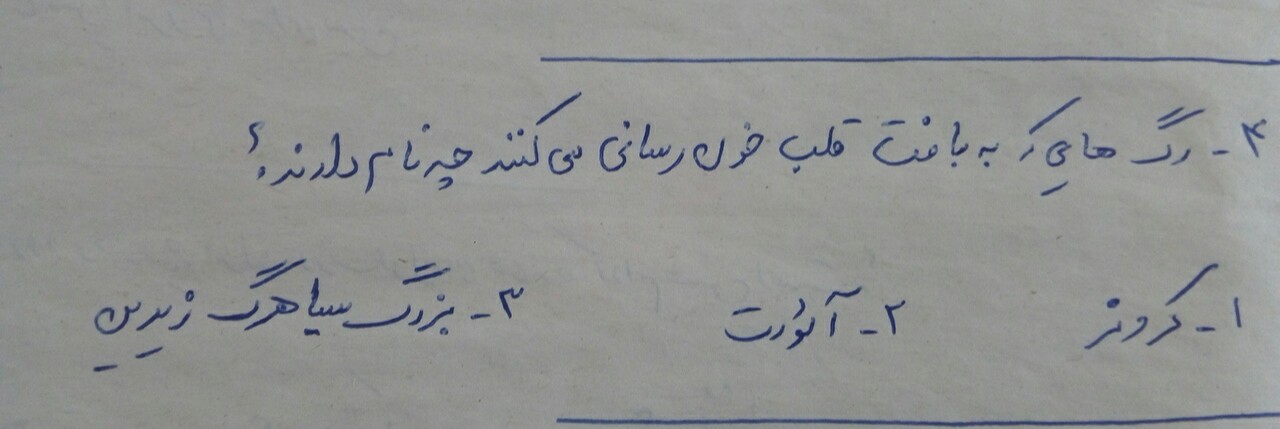 ۴- رگ هایی که به بافت قلب خون رسانی می کنند چه نام دارند؟
۱- کرونر ۲- آئورت ۳- بزرگ سیاهرگ زیرین